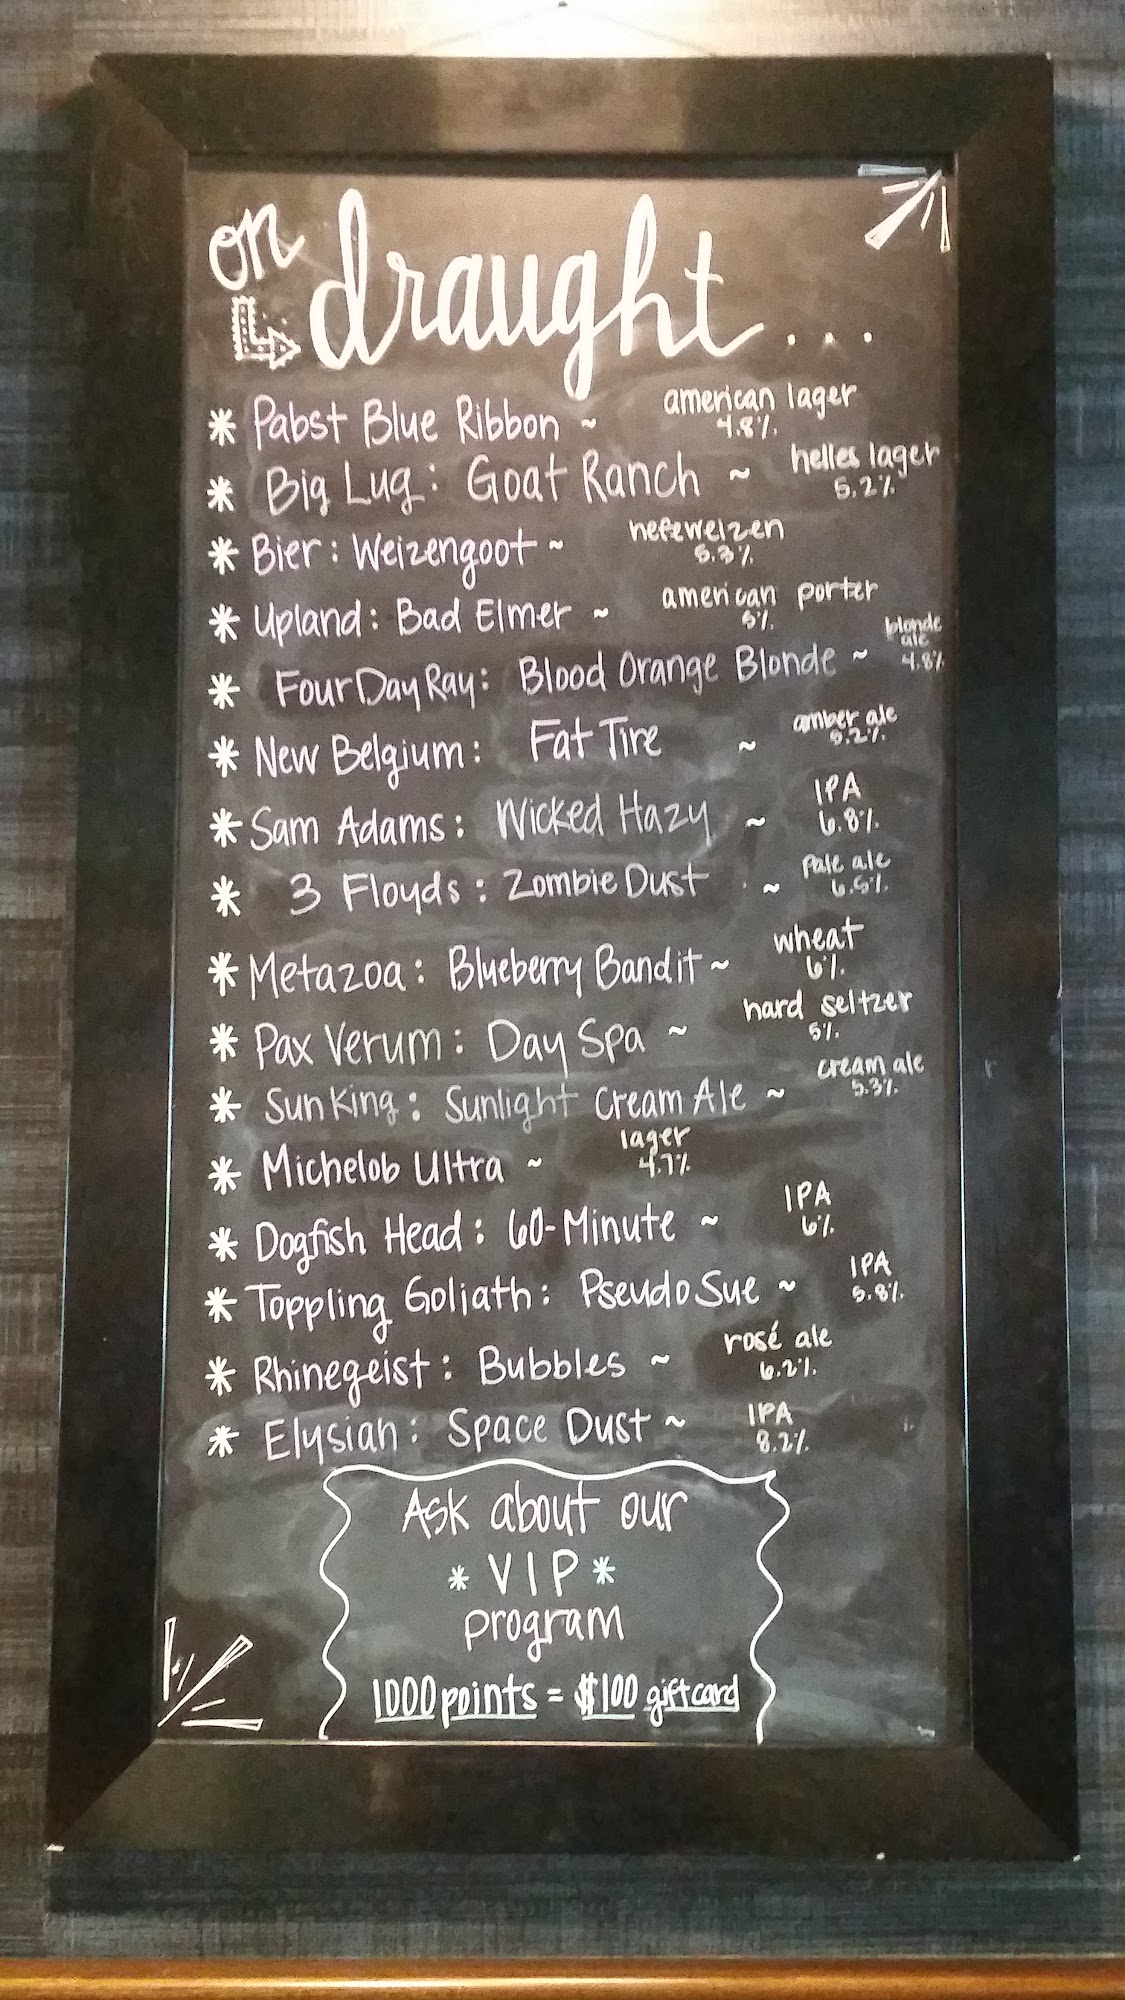 on
draught...
* Pabst Blue Ribbon ~ american lager
4.8%
* Big Lug: Goat Ranch ~ helles lager
5.2%
* Bier: Weizengoot ~ hefeweizen
5.3%
* Upland: Bad Elmer ~ american porter
6%
* Four Day Ray: Blood Orange Blonde ~ blonde
ale
4.8%
* New Belgium: Fat Tire ~ amber ale
5.2%
* Sam Adams: Wicked Hazy ~ IPA
6.8%
* 3 Floyds: Zombie Dust ~ pale ale
6.5%
* Metazoa: Blueberry Bandit ~ wheat
6%
* Pax Verum: Day Spa ~ hard seltzer
5%
* Sun King: Sunlight Cream Ale ~ cream ale
5.3%
* Michelob Ultra ~ lager
4.7%
* Dogfish Head: 60-Minute ~ IPA
6%
* Toppling Goliath: Pseudo Sue ~ IPA
5.8%
* Rhinegeist: Bubbles ~ rosé ale
6.2%
* Elysian: Space Dust ~ IPA
8.2%
Ask about our
* VIP *
program
1000 points = $100 gift card